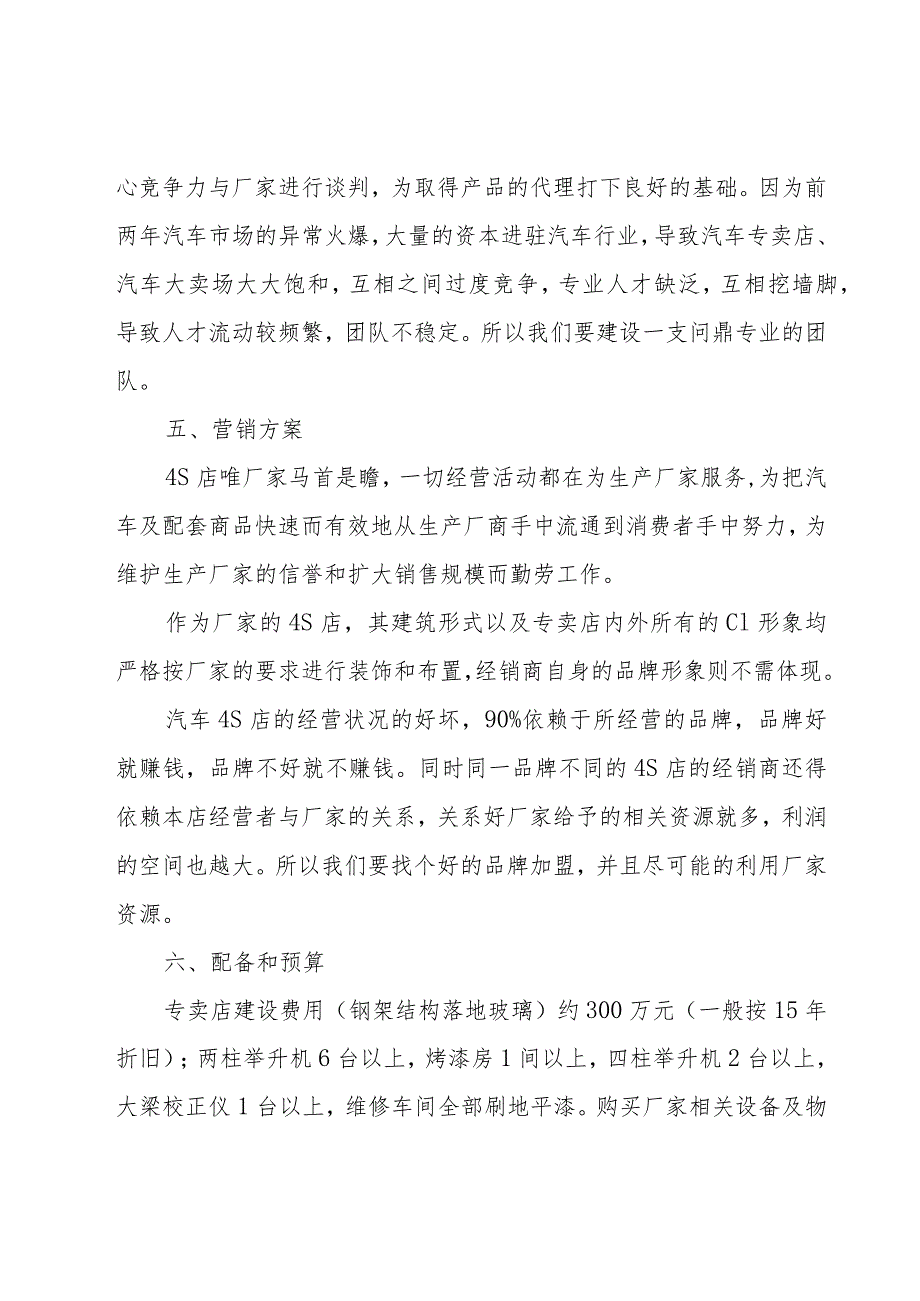 心竞争力与厂家进行谈判，为取得产品的代理打下良好的基础。因为前
两年汽车市场的异常火爆，大量的资本进驻汽车行业，导致汽车专卖店、
汽车大卖场大大饱和，互相之间过度竞争，专业人才缺泛，互相挖墙脚，
导致人才流动较频繁，团队不稳定。所以我们要建设一支问鼎专业的团
队。
五、营销方案
4S店唯厂家马首是瞻，一切经营活动都在为生产厂家服务,为把汽
车及配套商品快速而有效地从生产厂商手中流通到消费者手中努力，为
维护生产厂家的信誉和扩大销售规模而勤劳工作。
作为厂家的4S店，其建筑形式以及专卖店内外所有的Cl形象均
严格按厂家的要求进行装饰和布置,经销商自身的品牌形象则不需体现。
汽车4S店的经营状况的好坏，90%依赖于所经营的品牌，品牌好
就赚钱，品牌不好就不赚钱。同时同一品牌不同的4S店的经销商还得
依赖本店经营者与厂家的关系，关系好厂家给予的相关资源就多，利润
的空间也越大。所以我们要找个好的品牌加盟，并且尽可能的利用厂家
资源。
六、配备和预算
专卖店建设费用（钢架结构落地玻璃）约300万元（一般按15年
折旧）；两柱举升机6台以上，烤漆房1间以上，四柱举升机2台以上，
大梁校正仪1台以上，维修车间全部刷地平漆。购买厂家相关设备及物